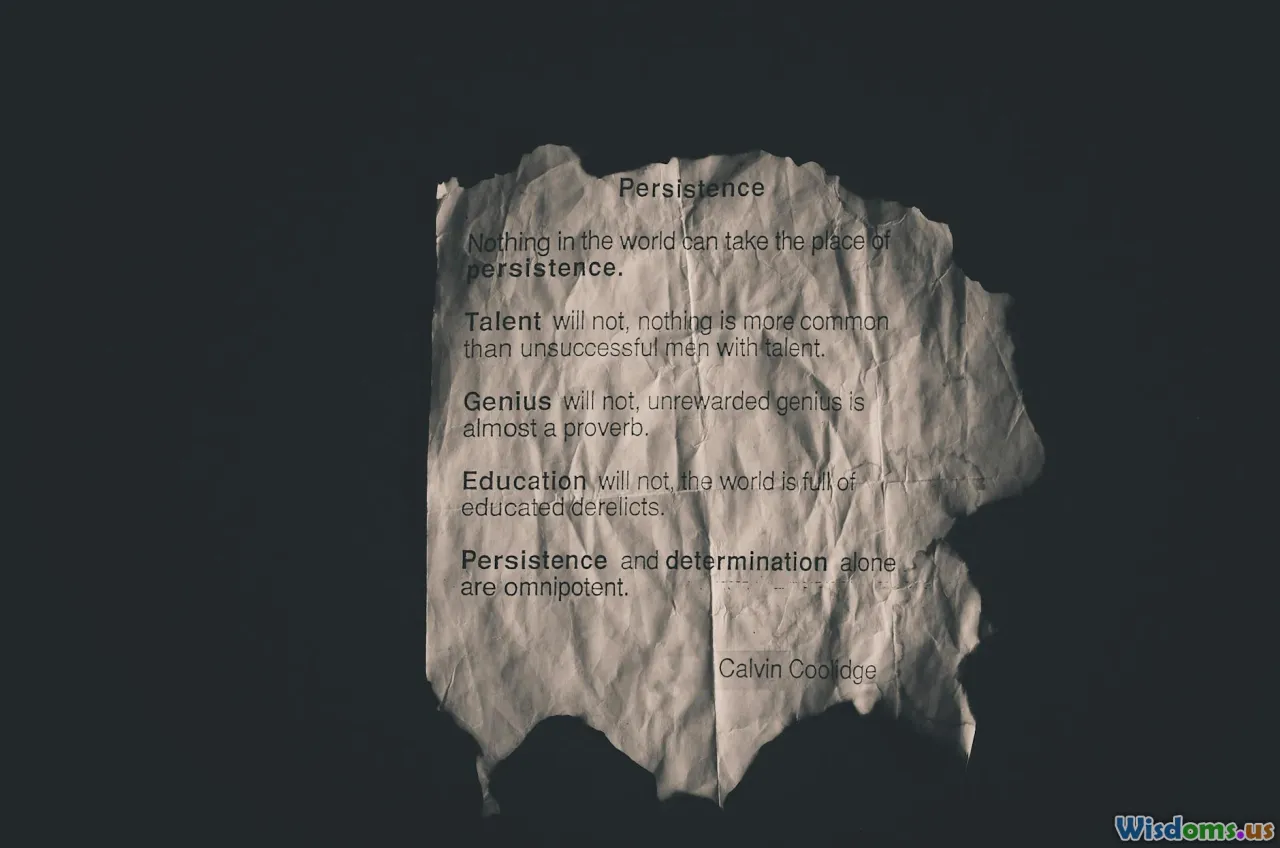 Persistence
Nothing in the world can take the place of
persistence.
Talent will not, nothing is more common
than unsuccessful men with talent.
Genius will not, unrewarded genius is
almost a proverb.
Education will not, the world is full of
educated derelicts.
Persistence and determination alone
are omnipotent.
Calvin Coolidge
Wisdoms.us